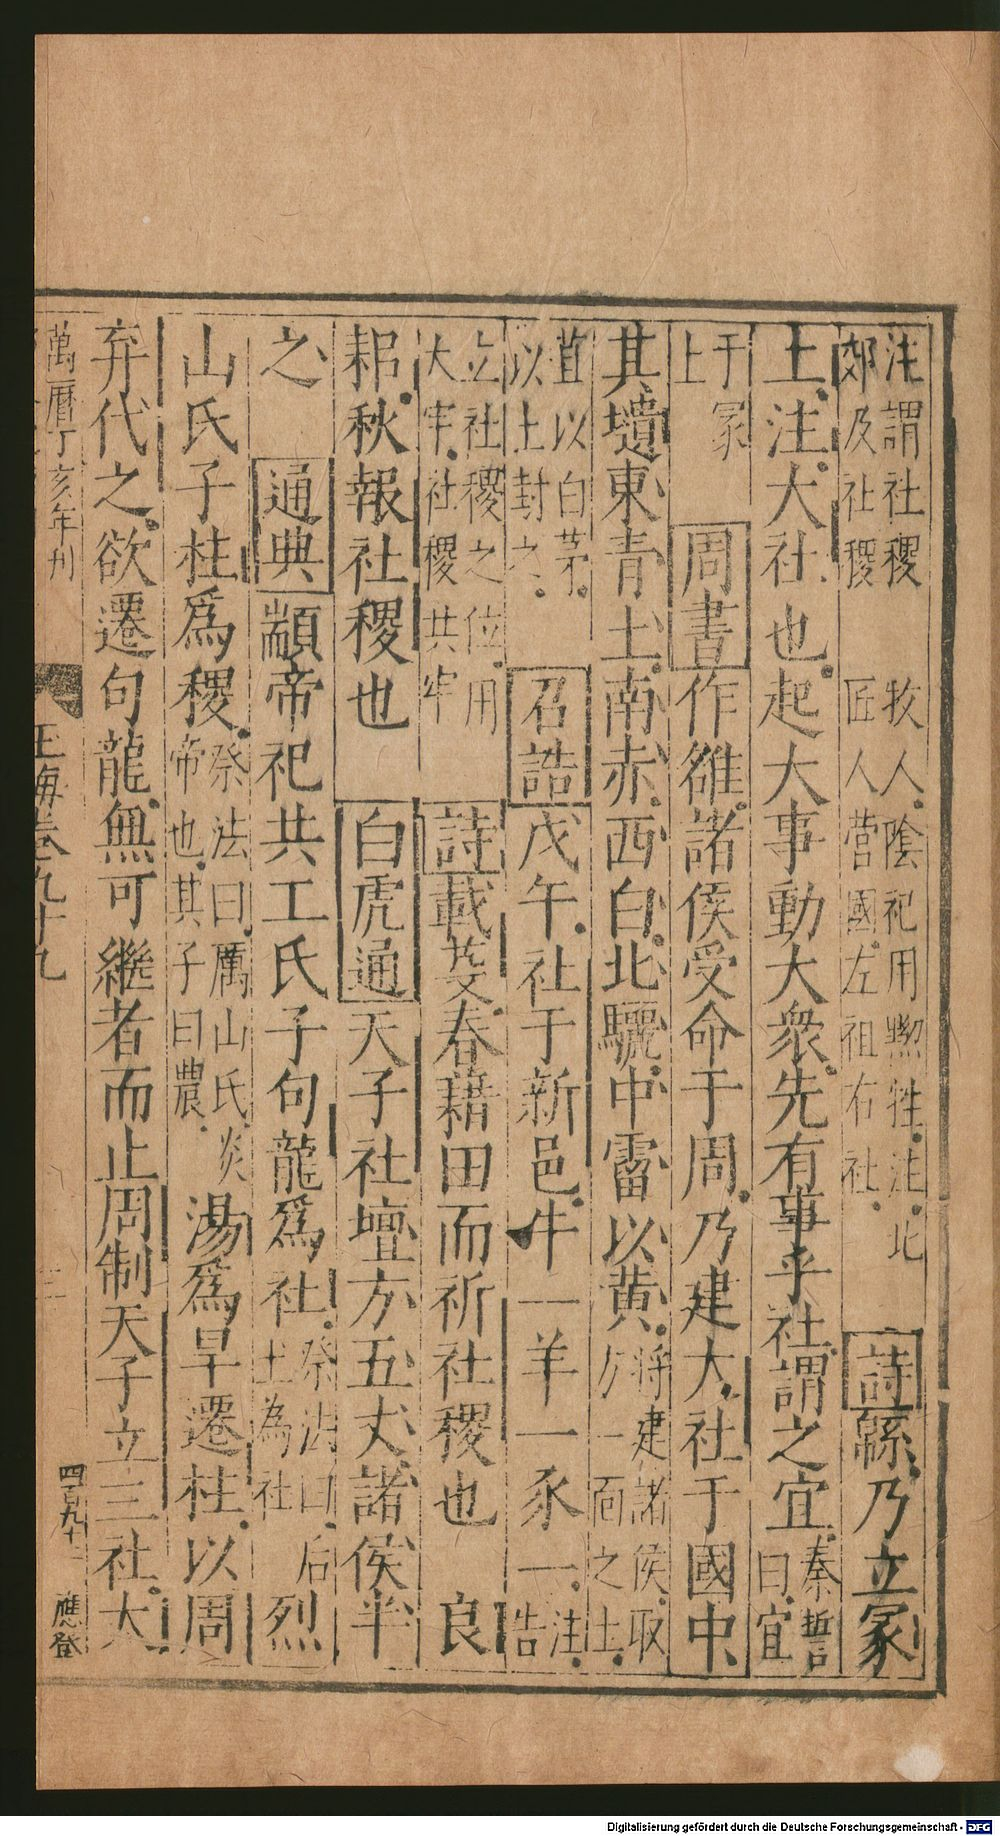 注謂社稷
郊及社稷
牧人陰祀用黝牲注北
匠人營國左祖右社
詩緜乃立冢
土注大社也起大事動大衆先有事乎社謂之宜
秦誓
曰宜
于冢
上
周書作雒諸侯受命于周乃建大社于國中
其壝東青土南赤西白北驪中霤以黃
將建諸侯取
方一面之土
苴以白茅
以土封之
召誥戊午社于新邑牛一羊一豕一
注
告
立社稷之位用
大牢社稷共牢
詩載芟春藉田而祈社稷也 良
耜秋報社稷也 白虎通天子社壇方五丈諸侯半
之 通典顓帝祀共工氏子句龍爲社
祭法曰后
土為社
烈
山氏子柱爲稷
祭法曰厲山氏炎
帝也其子曰農
湯爲旱遷柱以周
弃代之欲遷句龍無可繼者而止周制天子立三社大
萬曆丁亥年刊
玉海卷九十九
四百九十二
應登
Digitalisierung gefördert durch die Deutsche Forschungsgemeinschaft - DFG